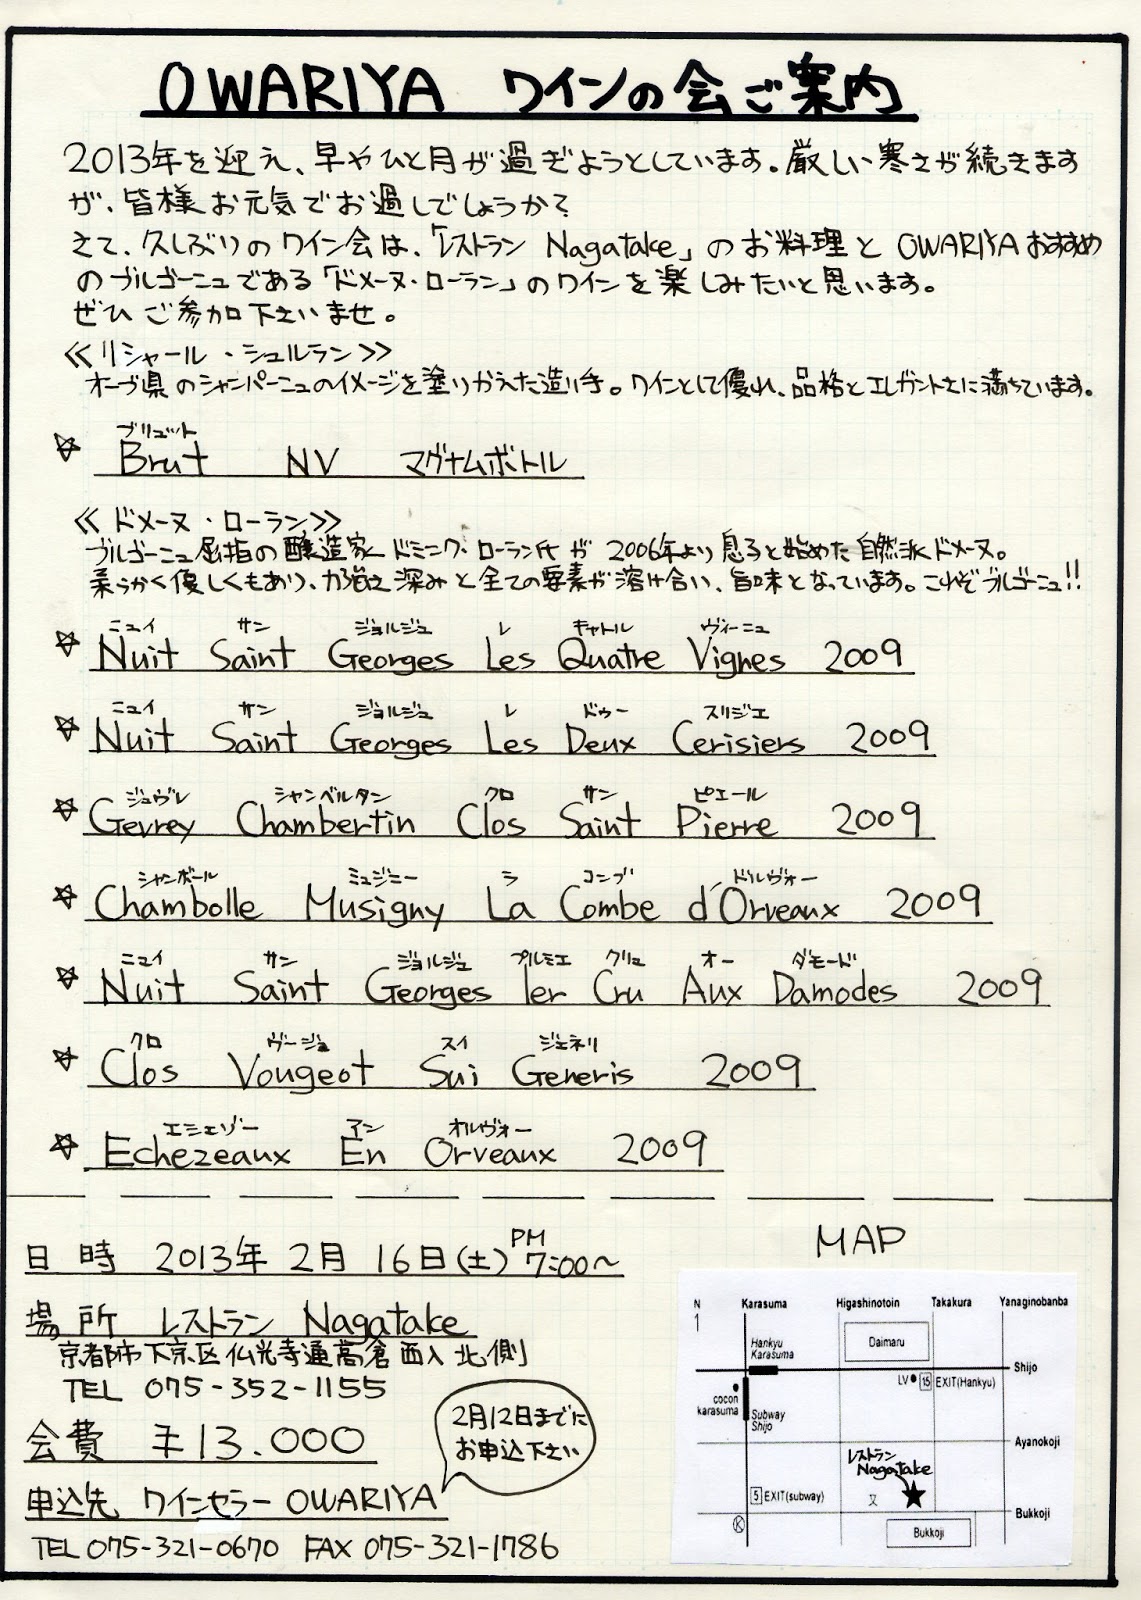 OWARIYA ワインの会ご案内
2013年を迎え、早やひと月が過ぎようとしています。厳しい寒さが続きます
が、皆様お元気でお過しでしょうか?
さて、久しぶりのワイン会は、「レストラン Nagatake」のお料理と OWARIYAおすすめ
のブルゴーニュである「ドメーヌ・ローラン」のワインを楽しみたいと思います。
ぜひご参加下さいませ。
≪リシャール・シュルラン≫
オーブ県のシャンパーニュのイメージを塗りかえた造り手。ワインとして優れ、品格とエレガントさに満ちています。
ブリュット
☆ Brut NV マグナムボトル
≪ドメーヌ・ローラン≫
ブルゴーニュ屈指の醸造家 ドミニク・ローラン氏が 2006年より息子と始めた自然派ドメーヌ。
柔らかく優しくもあり、力強さ深みと全ての要素が溶け合い、旨味となっています。これぞブルゴーニュ!!
ニュイ サン ジョルジュ レ キャトル ヴィーニュ
☆ Nuit Saint Georges Les Quatre Vignes 2009
ニュイ サン ジョルジュ レ ドゥー スリジエ
☆ Nuit Saint Georges Les Deux Cerisiers 2009
ジュヴレ シャンベルタン クロ サン ピエール
☆ Gevrey Chambertin Clos Saint Pierre 2009
シャンボール ミュジニー ラ コンブ ドルヴォー
☆ Chambolle Musigny La Combe d'Orveaux 2009
ニュイ サン ジョルジュ プルミエ クリュ オー ダモード
☆ Nuit Saint Georges 1er Cru Aux Damodes 2009
クロ ヴージョ スイ ジェネリ
☆ Clos Vougeot Sui Generis 2009
エシェゾー アン オルヴォー
☆ Echezeaux En Orveaux 2009
日時 2013年 2月 16日(土) PM 7:00〜
場所 レストラン Nagatake
京都市下京区仏光寺通高倉西入北側
TEL 075-352-1155
会費 ¥13.000
2月12日までに
お申込下さい
申込先 ワインセラー OWARIYA
TEL 075-321-0670 FAX 075-321-1786
MAP
N Karasuma Higashinotoin Takakura Yanaginobanba
1
Hankyu
Karasuma
Daimaru
Shijo
LV 15 EXIT(Hankyu)
cocon
karasuma
Subway
Shijo
Ayanokoji
レストラン
Nagatake
5 EXIT(subway)
文
Bukkoji
K
Bukkoji